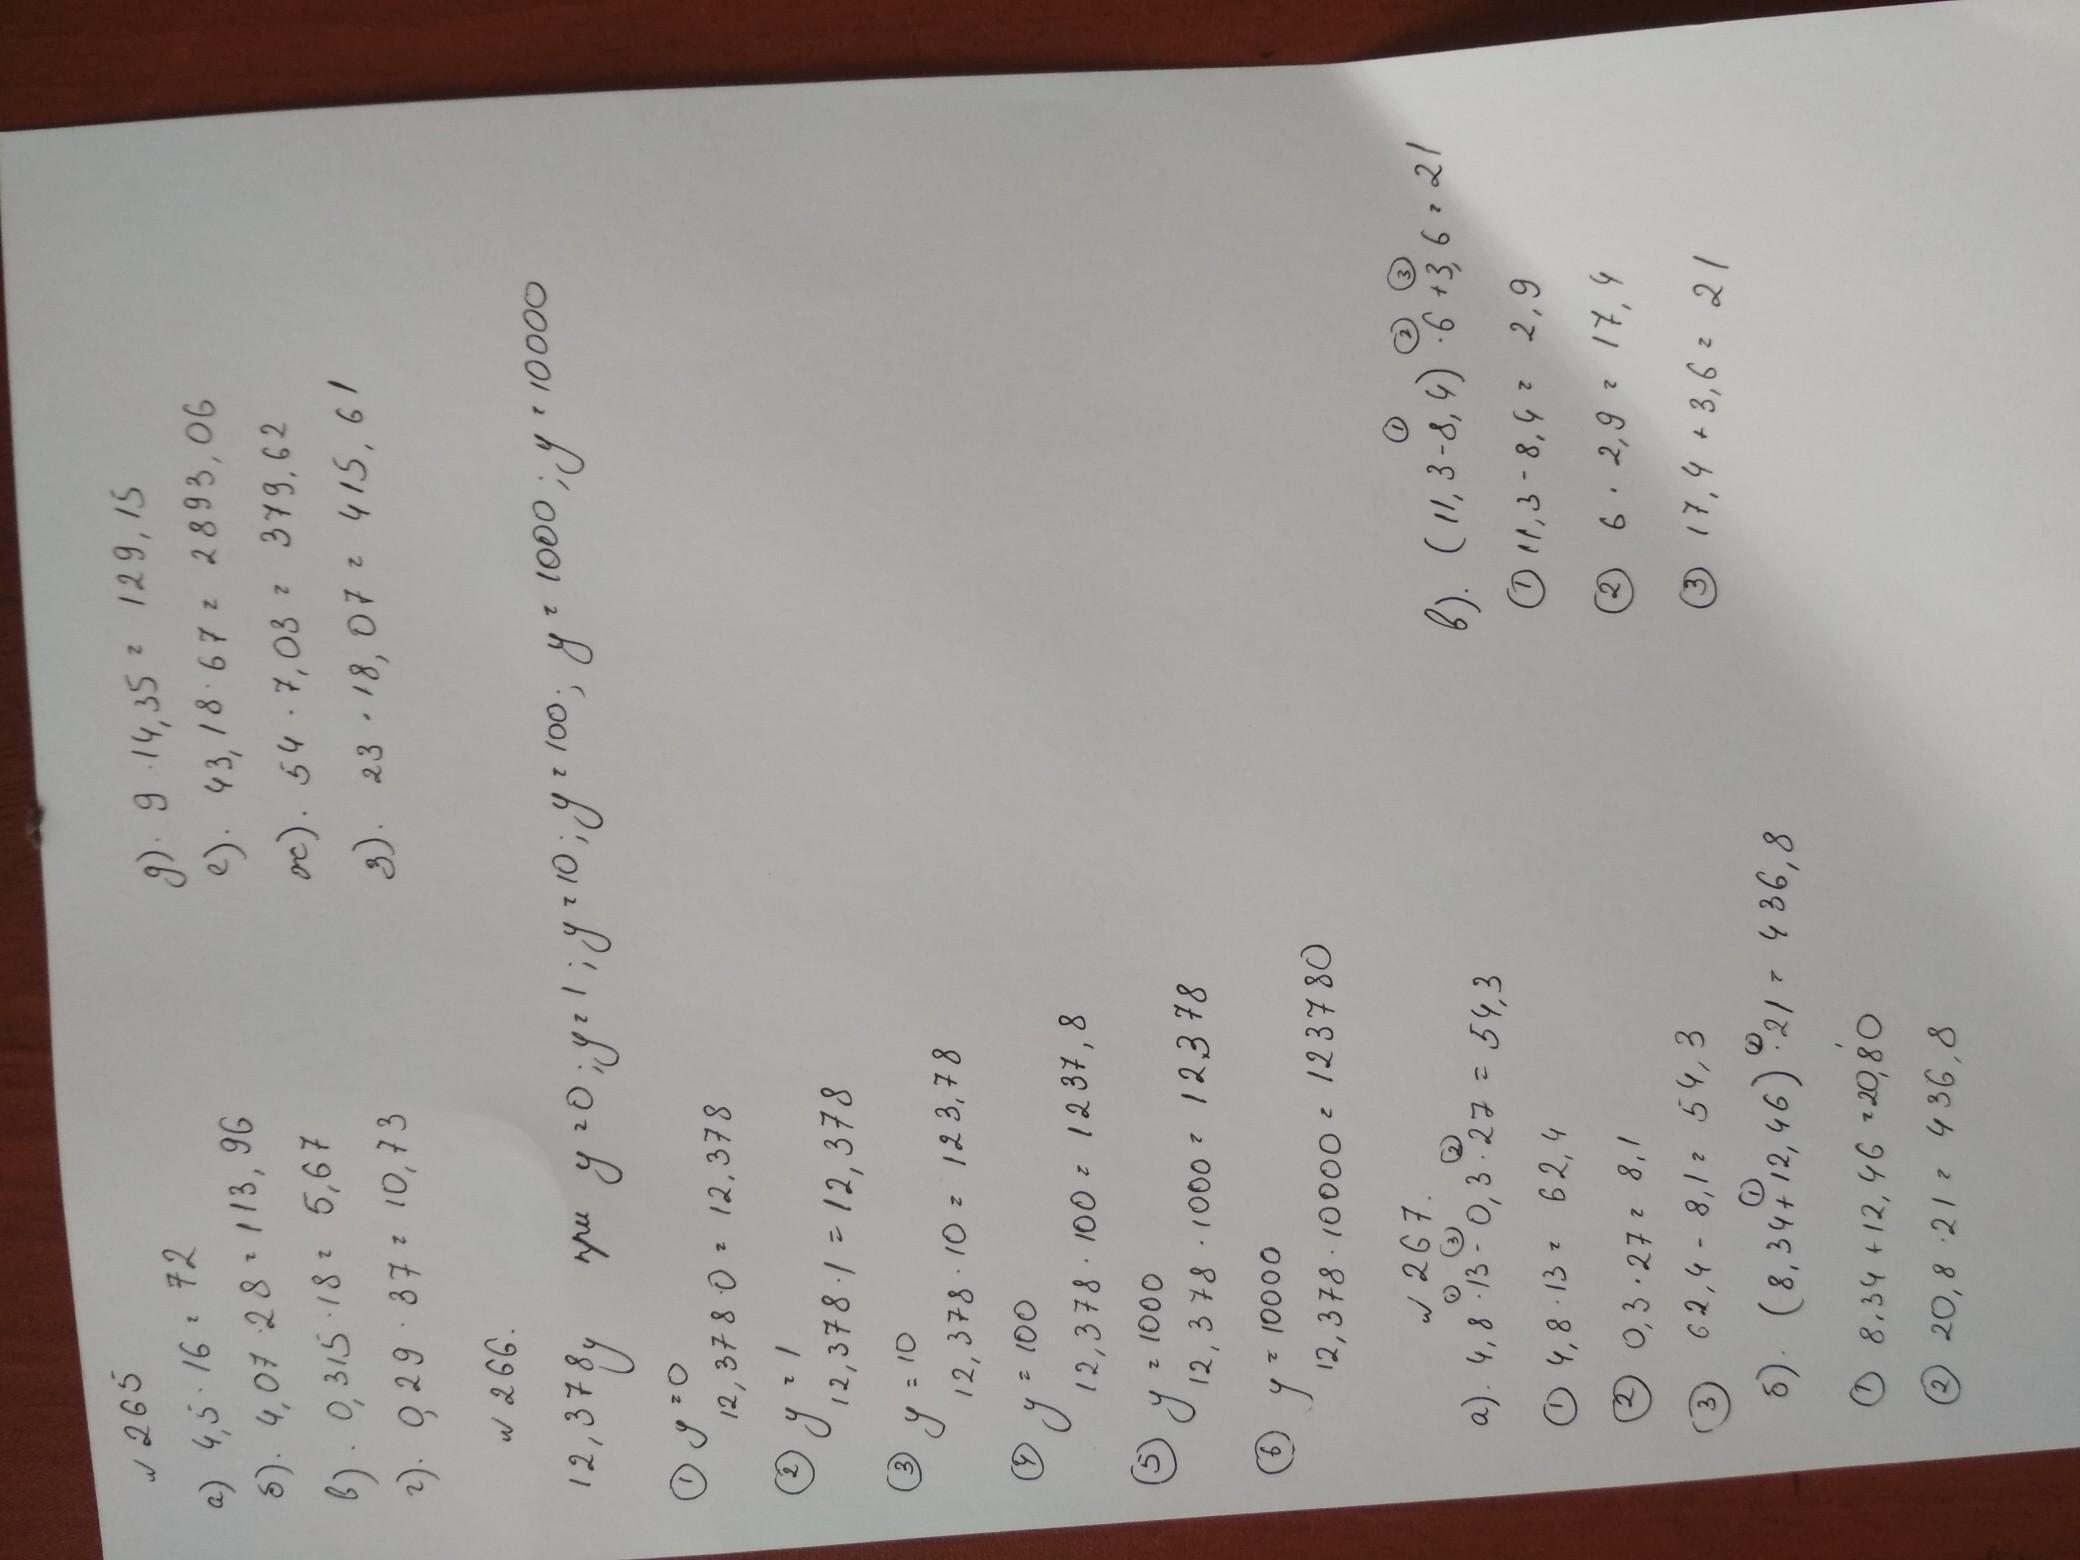 № 265
а) 4,5 · 16 = 72
б). 4,07 · 28 = 113,96
в). 0,315 · 18 = 5,67
г). 0,29 · 37 = 10,73
д). 9 · 14,35 = 129,15
е). 43,18 · 67 = 2893,06
ж). 54 · 7,03 = 379,62
з). 23 · 18,07 = 415,61
№ 266.
12,378y при y = 0; y = 1; y = 10; y = 100; y = 1000; y = 10000
① y = 0
12,378 · 0 = 12,378
② y = 1
12,378 · 1 = 12,378
③ y = 10
12,378 · 10 = 123,78
④ y = 100
12,378 · 100 = 1237,8
⑤ y = 1000
12,378 · 1000 = 12378
⑥ y = 10000
12,378 · 10000 = 123780
№ 267.
① ③ ②
а). 4,8 · 13 - 0,3 · 27 = 54,3
① 4,8 · 13 = 62,4
② 0,3 · 27 = 8,1
③ 62,4 - 8,1 = 54,3
① ②
б). (8,34 + 12,46) · 21 = 436,8
① 8,34 + 12,46 = 20,80
② 20,8 · 21 = 436,8
① ② ③
в). (11,3 - 8,4) · 6 + 3,6 = 21
① 11,3 - 8,4 = 2,9
② 6 · 2,9 = 17,4
③ 17,4 + 3,6 = 21